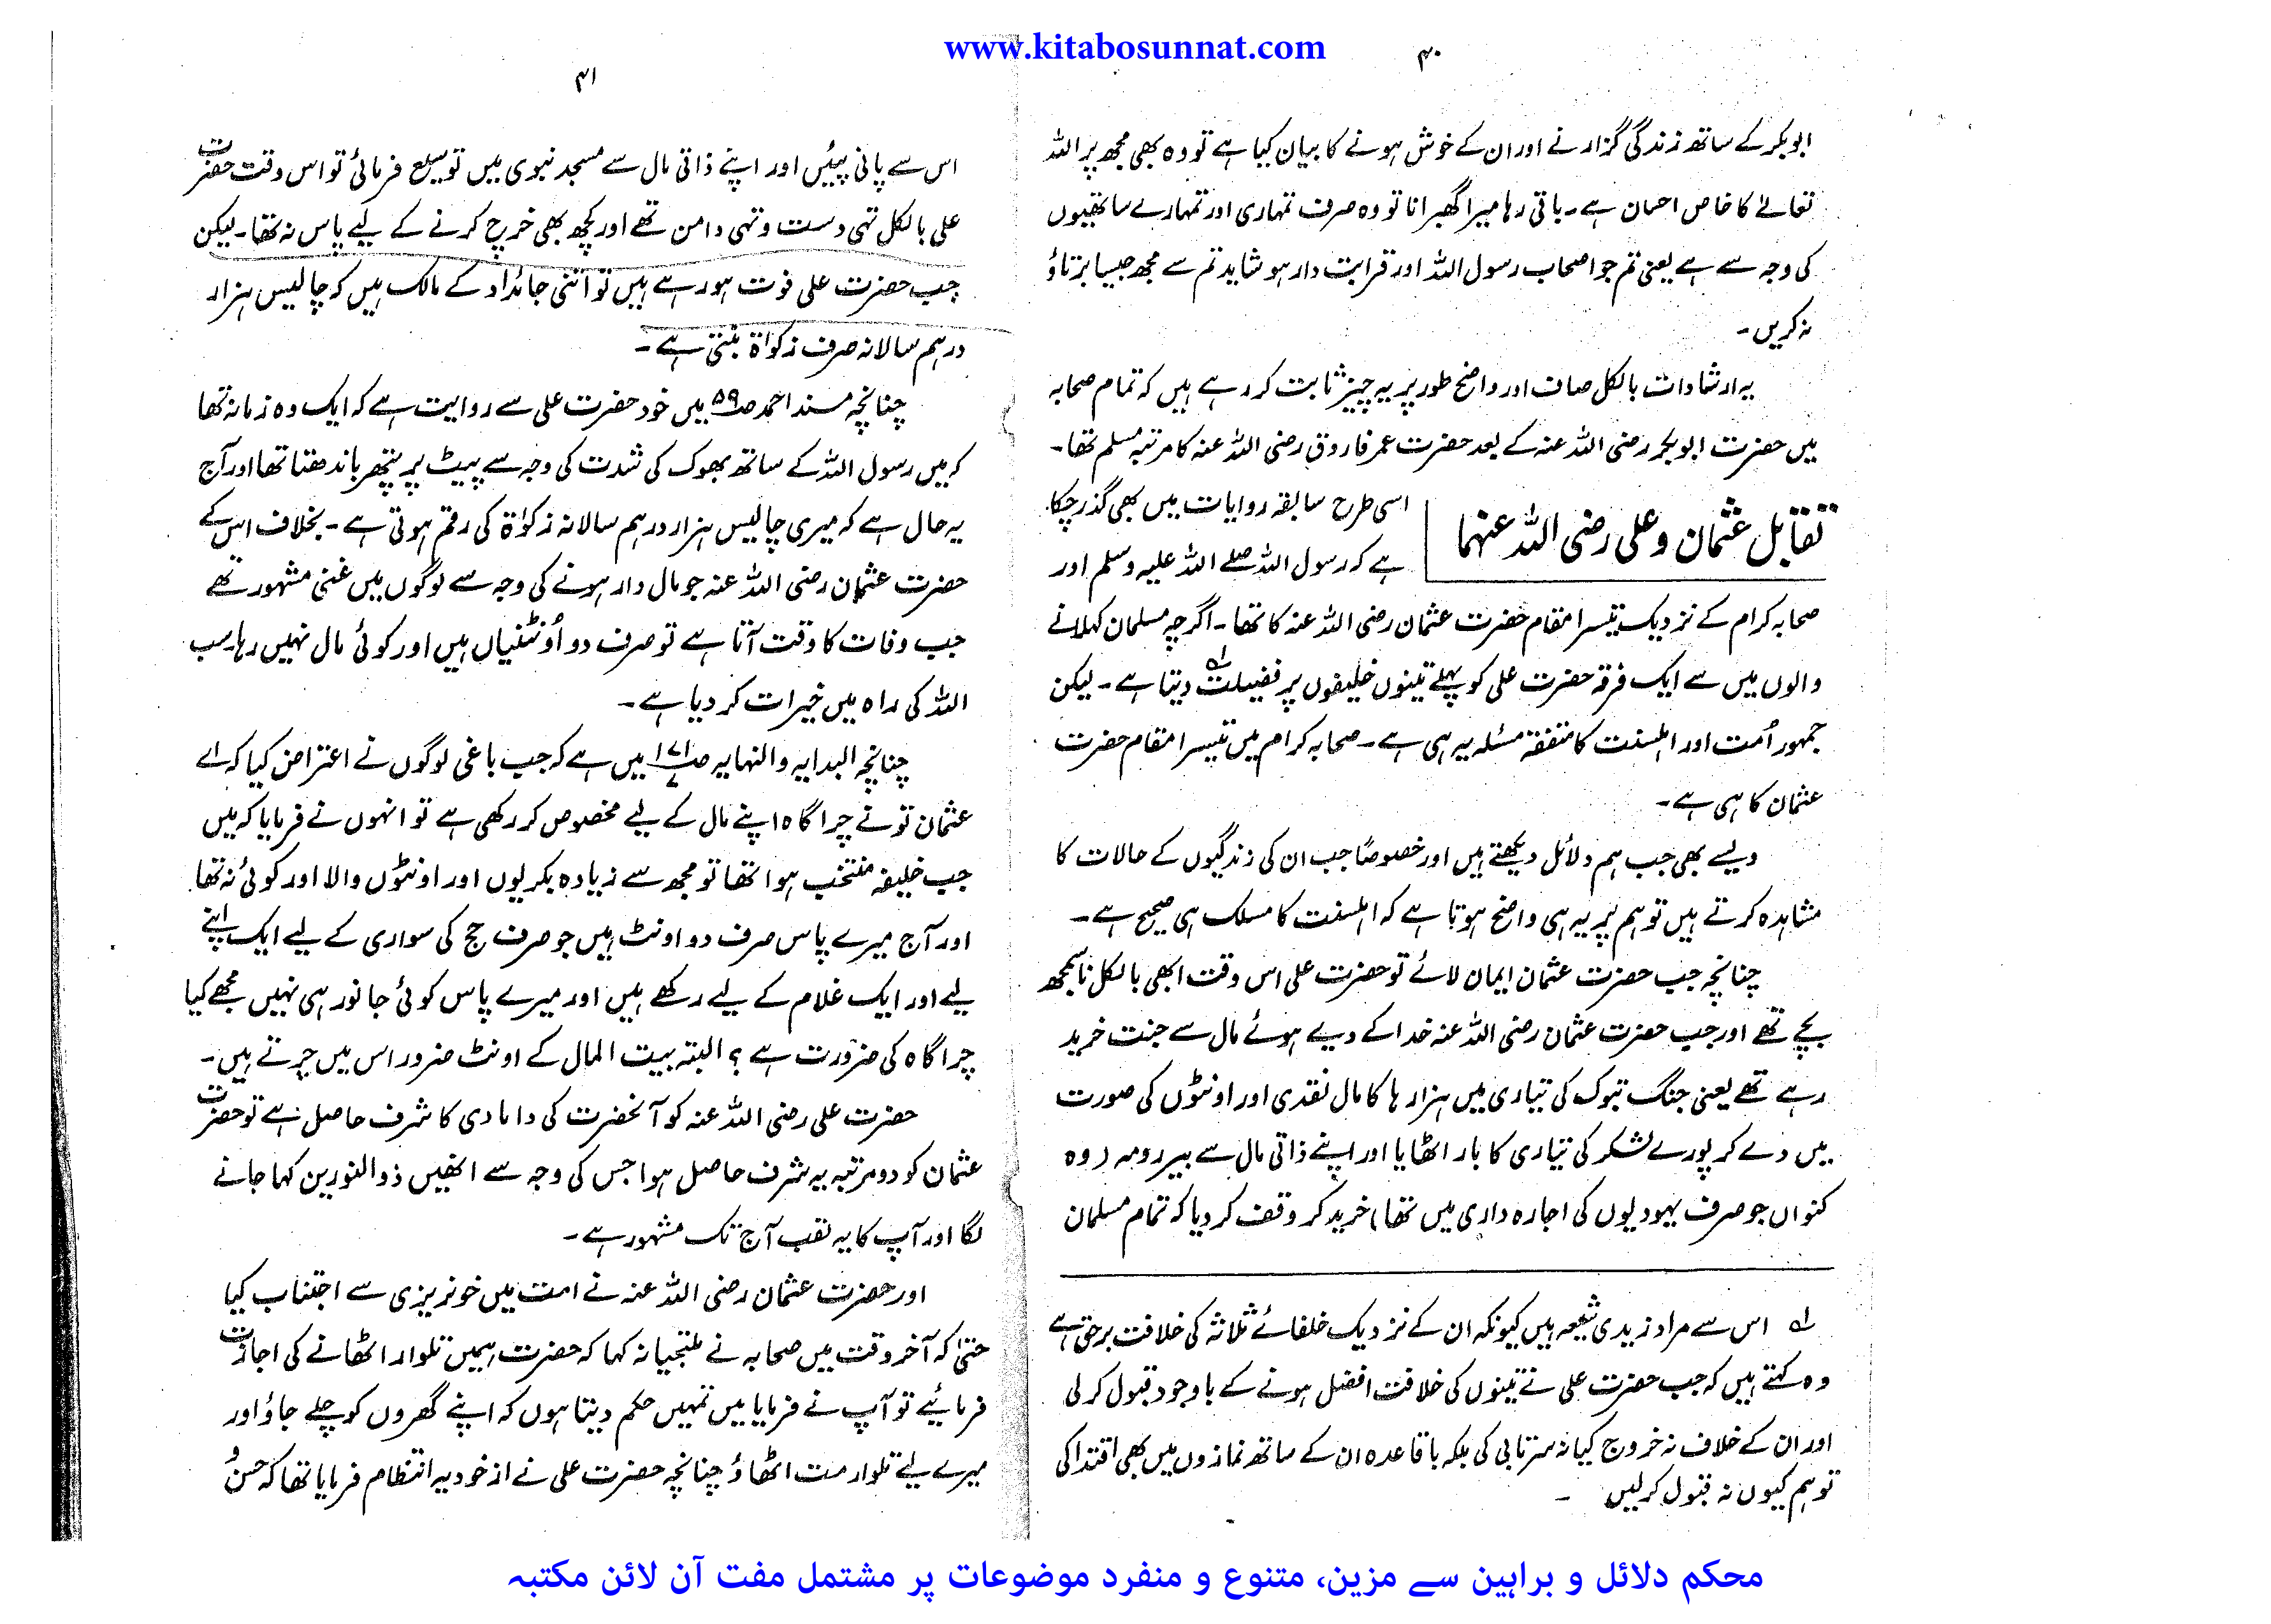 www.kitabosunnat.com
۴۰
ابوبکر کے ساتھ زندگی گزارنے اور ان کے خوش ہونے کا بیان کیا ہے تو وہ بھی مجھ پر اللہ
تعالےٰ کا خاص احسان ہے۔ باقی رہا میرا گھبرانا تو وہ صرف تمہاری اور تمہارے ساتھیوں
کی وجہ سے ہے یعنی تم جو اصحاب رسول اللہ اور قرابت دار ہو شاید تم سے مجھ جیسا برتاؤ
نہ کریں۔
یہ ارشادات بالکل صاف اور واضح طور پر یہ چیز ثابت کر رہے ہیں کہ تمام صحابہ
میں حضرت ابوبکر رضی اللہ عنہ کے بعد حضرت عمر فاروق رضی اللہ عنہ کا مرتبہ مسلم تھا۔
تقابل عثمان و علی رضی اللہ عنہما
اسی طرح سابقہ روایات میں بھی گذر چکا
ہے کہ رسول اللہ صلے اللہ علیہ وسلم اور
صحابہ کرام کے نزدیک تیسرا مقام حضرت عثمان رضی اللہ عنہ کا تھا۔ اگرچہ مسلمان کہلانے
والوں میں سے ایک فرقہ حضرت علی کو پہلے تینوں خلیفوں پر فضیلت ؎۱ دیتا ہے۔ لیکن
جمہور اُمت اور اہلسنت کا متفقہ مسئلہ یہ ہی ہے۔ صحابہ کرام میں تیسرا مقام حضرت
عثمان کا ہی ہے۔
ویسے بھی جب ہم دلائل دیکھتے ہیں اور خصوصاً جب ان کی زندگیوں کے حالات کا
مشاہدہ کرتے ہیں تو ہم پر یہ ہی واضح ہوتا ہے کہ اہلسنت کا مسلک ہی صحیح ہے۔
چنانچہ جب حضرت عثمان ایمان لائے تو حضرت علی اس وقت ابھی بالکل ناسمجھ
بچے تھے اور جب حضرت عثمان رضی اللہ عنہ خدا کے دیے ہوئے مال سے جنت خرید
رہے تھے یعنی جنگ تبوک کی تیاری میں ہزارہا کا مال نقدی اور اونٹوں کی صورت
میں دے کر پورے لشکر کی تیاری کا بار اٹھایا اور اپنے ذاتی مال سے بیر رومہ (وہ
کنواں جو صرف یہودیوں کی اجارہ داری میں تھا) خرید کر وقف کر دیا کہ تمام مسلمان
؎۱ اس سے مراد زیدی شیعہ ہیں کیونکہ ان کے نزدیک خلفائے ثلاثہ کی خلافت برحق ہے
وہ کہتے ہیں کہ جب حضرت علی نے تینوں کی خلافت افضل ہونے کے باوجود قبول کر لی
اور ان کے خلاف نہ خروج کیا نہ سرتابی کی بلکہ باقاعدہ ان کے ساتھ نمازوں میں بھی اقتدا کی
تو ہم کیوں نہ قبول کر لیں ۔
۴۱
اس سے پانی پیئیں اور اپنے ذاتی مال سے مسجد نبوی میں توسیع فرمائی تو اس وقت حضرت
علی بالکل تہی دست و تہی دامن تھے اور کچھ بھی خرچ کرنے کے لیے پاس نہ تھا۔ لیکن
جب حضرت علی فوت ہو رہے ہیں تو اتنی جائداد کے مالک ہیں کہ چالیس ہزار
درہم سالانہ صرف زکواۃ بنتی ہے۔
چنانچہ مسند احمد ص۵۹ میں خود حضرت علی سے روایت ہے کہ ایک وہ زمانہ تھا
کہ میں رسول اللہ کے ساتھ بھوک کی شدت کی وجہ سے پیٹ پر پتھر باندھتا تھا اور آج
یہ حال ہے کہ میری چالیس ہزار درہم سالانہ زکواۃ کی رقم ہوتی ہے۔ بخلاف اس کے
حضرت عثمان رضی اللہ عنہ جو مال دار ہونے کی وجہ سے لوگوں میں غنی مشہور تھے
جب وفات کا وقت آتا ہے تو صرف دو اُونٹنیاں ہیں اور کوئی مال نہیں رہا۔ سب
اللہ کی راہ میں خیرات کر دیا ہے۔
چنانچہ البدایہ والنہایہ ص۱۷۱/۷ میں ہے کہ جب باغی لوگوں نے اعتراض کیا کہ اے
عثمان تو نے چراگاہ اپنے مال کے لیے مخصوص کر رکھی ہے تو انہوں نے فرمایا کہ میں
جب خلیفہ منتخب ہوا تھا تو مجھ سے زیادہ بکریوں اور اونٹوں والا اور کوئی نہ تھا۔
اور آج میرے پاس صرف دو اونٹ ہیں جو صرف حج کی سواری کے لیے ایک اپنے
لیے اور ایک غلام کے لیے رکھے ہیں اور میرے پاس کوئی جانور ہی نہیں مجھے کیا
چراگاہ کی ضرورت ہے؟ البتہ بیت المال کے اونٹ ضرور اس میں چرتے ہیں۔
حضرت علی رضی اللہ عنہ کو آنحضرت کی دامادی کا شرف حاصل ہے تو حضرت
عثمان کو دو مرتبہ یہ شرف حاصل ہوا جس کی وجہ سے انھیں ذوالنورین کہا جانے
لگا اور آپ کا یہ لقب آج تک مشہور ہے۔
اور حضرت عثمان رضی اللہ عنہ نے امت میں خونریزی سے اجتناب کیا
حتیٰ کہ آخر وقت میں صحابہ نے ملتجیانہ کہا کہ حضرت ہمیں تلوار اٹھانے کی اجازت
فرمائیے تو آپ نے فرمایا میں تمہیں حکم دیتا ہوں کہ اپنے گھروں کو چلے جاؤ اور
میرے لیے تلوار مت اٹھاؤ چنانچہ حضرت علی نے از خود یہ انتظام فرمایا تھا کہ حسن و
محکم دلائل و براہین سے مزین، متنوع و منفرد موضوعات پر مشتمل مفت آن لائن مکتبہ